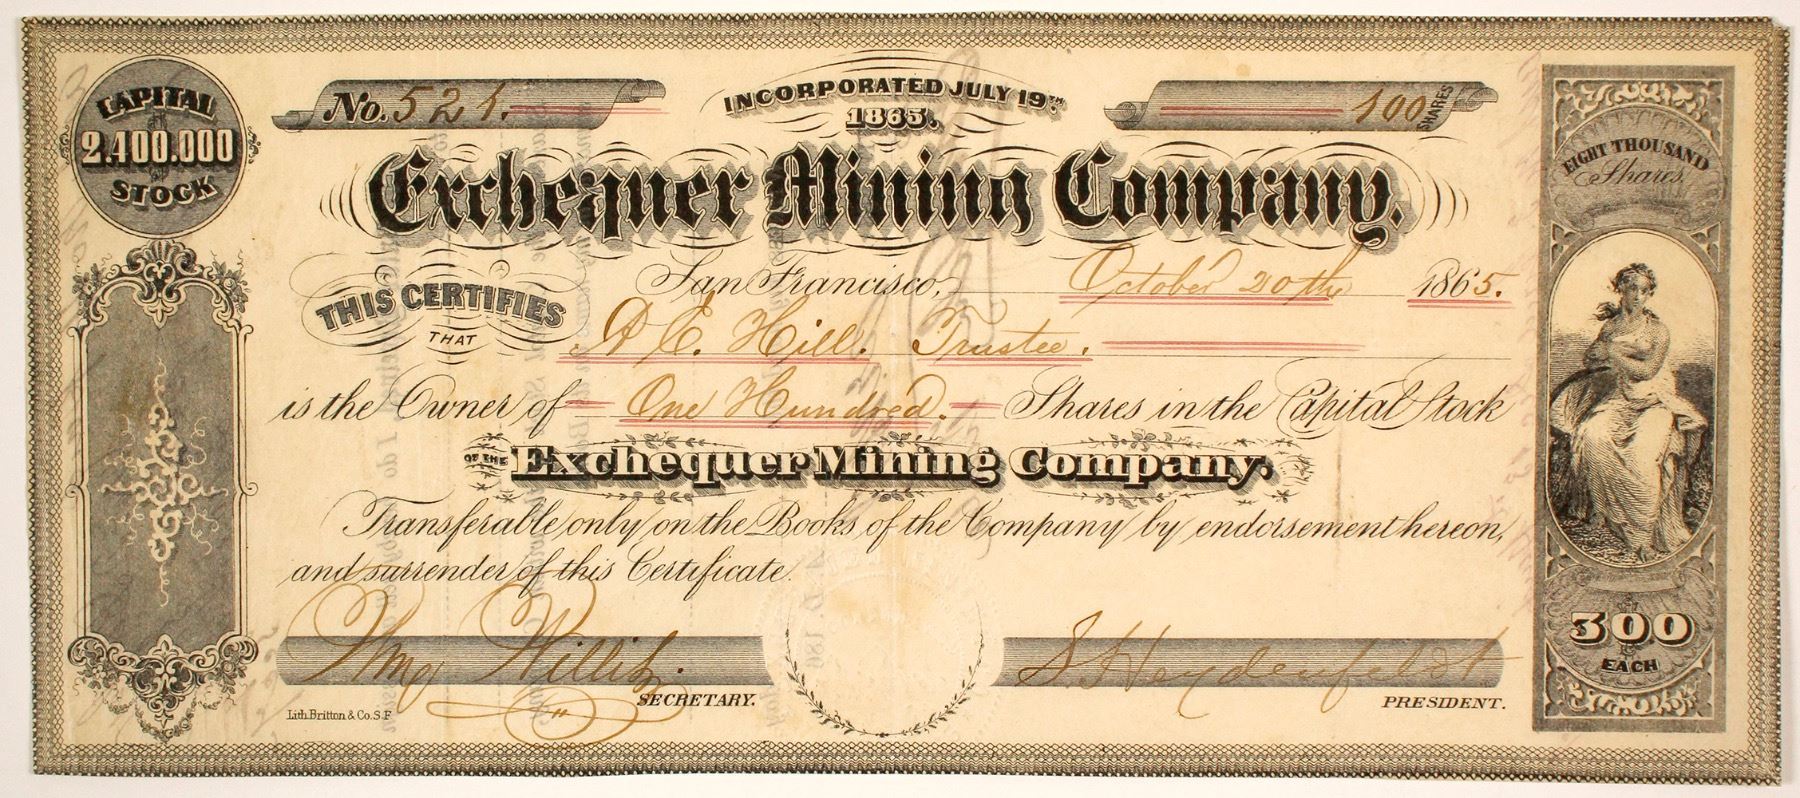 CAPITAL
2.400.000
STOCK
No. 521.
INCORPORATED JULY 19TH
1865.
100 SHARES
EIGHT THOUSAND
Shares.
Exchequer Mining Company.
San Francisco, October 20th 1865.
THIS CERTIFIES
THAT
A E. Hill. Trustee.
is the Owner of One Hundred. Shares in the Capital Stock
OF THE Exchequer Mining Company.
Transferable only on the Books of the Company by endorsement hereon,
and surrender of this Certificate.
Wm Willis.
SECRETARY.
S Heydenfeldt
PRESIDENT.
300
EACH
Lith. Britton & Co. S.F